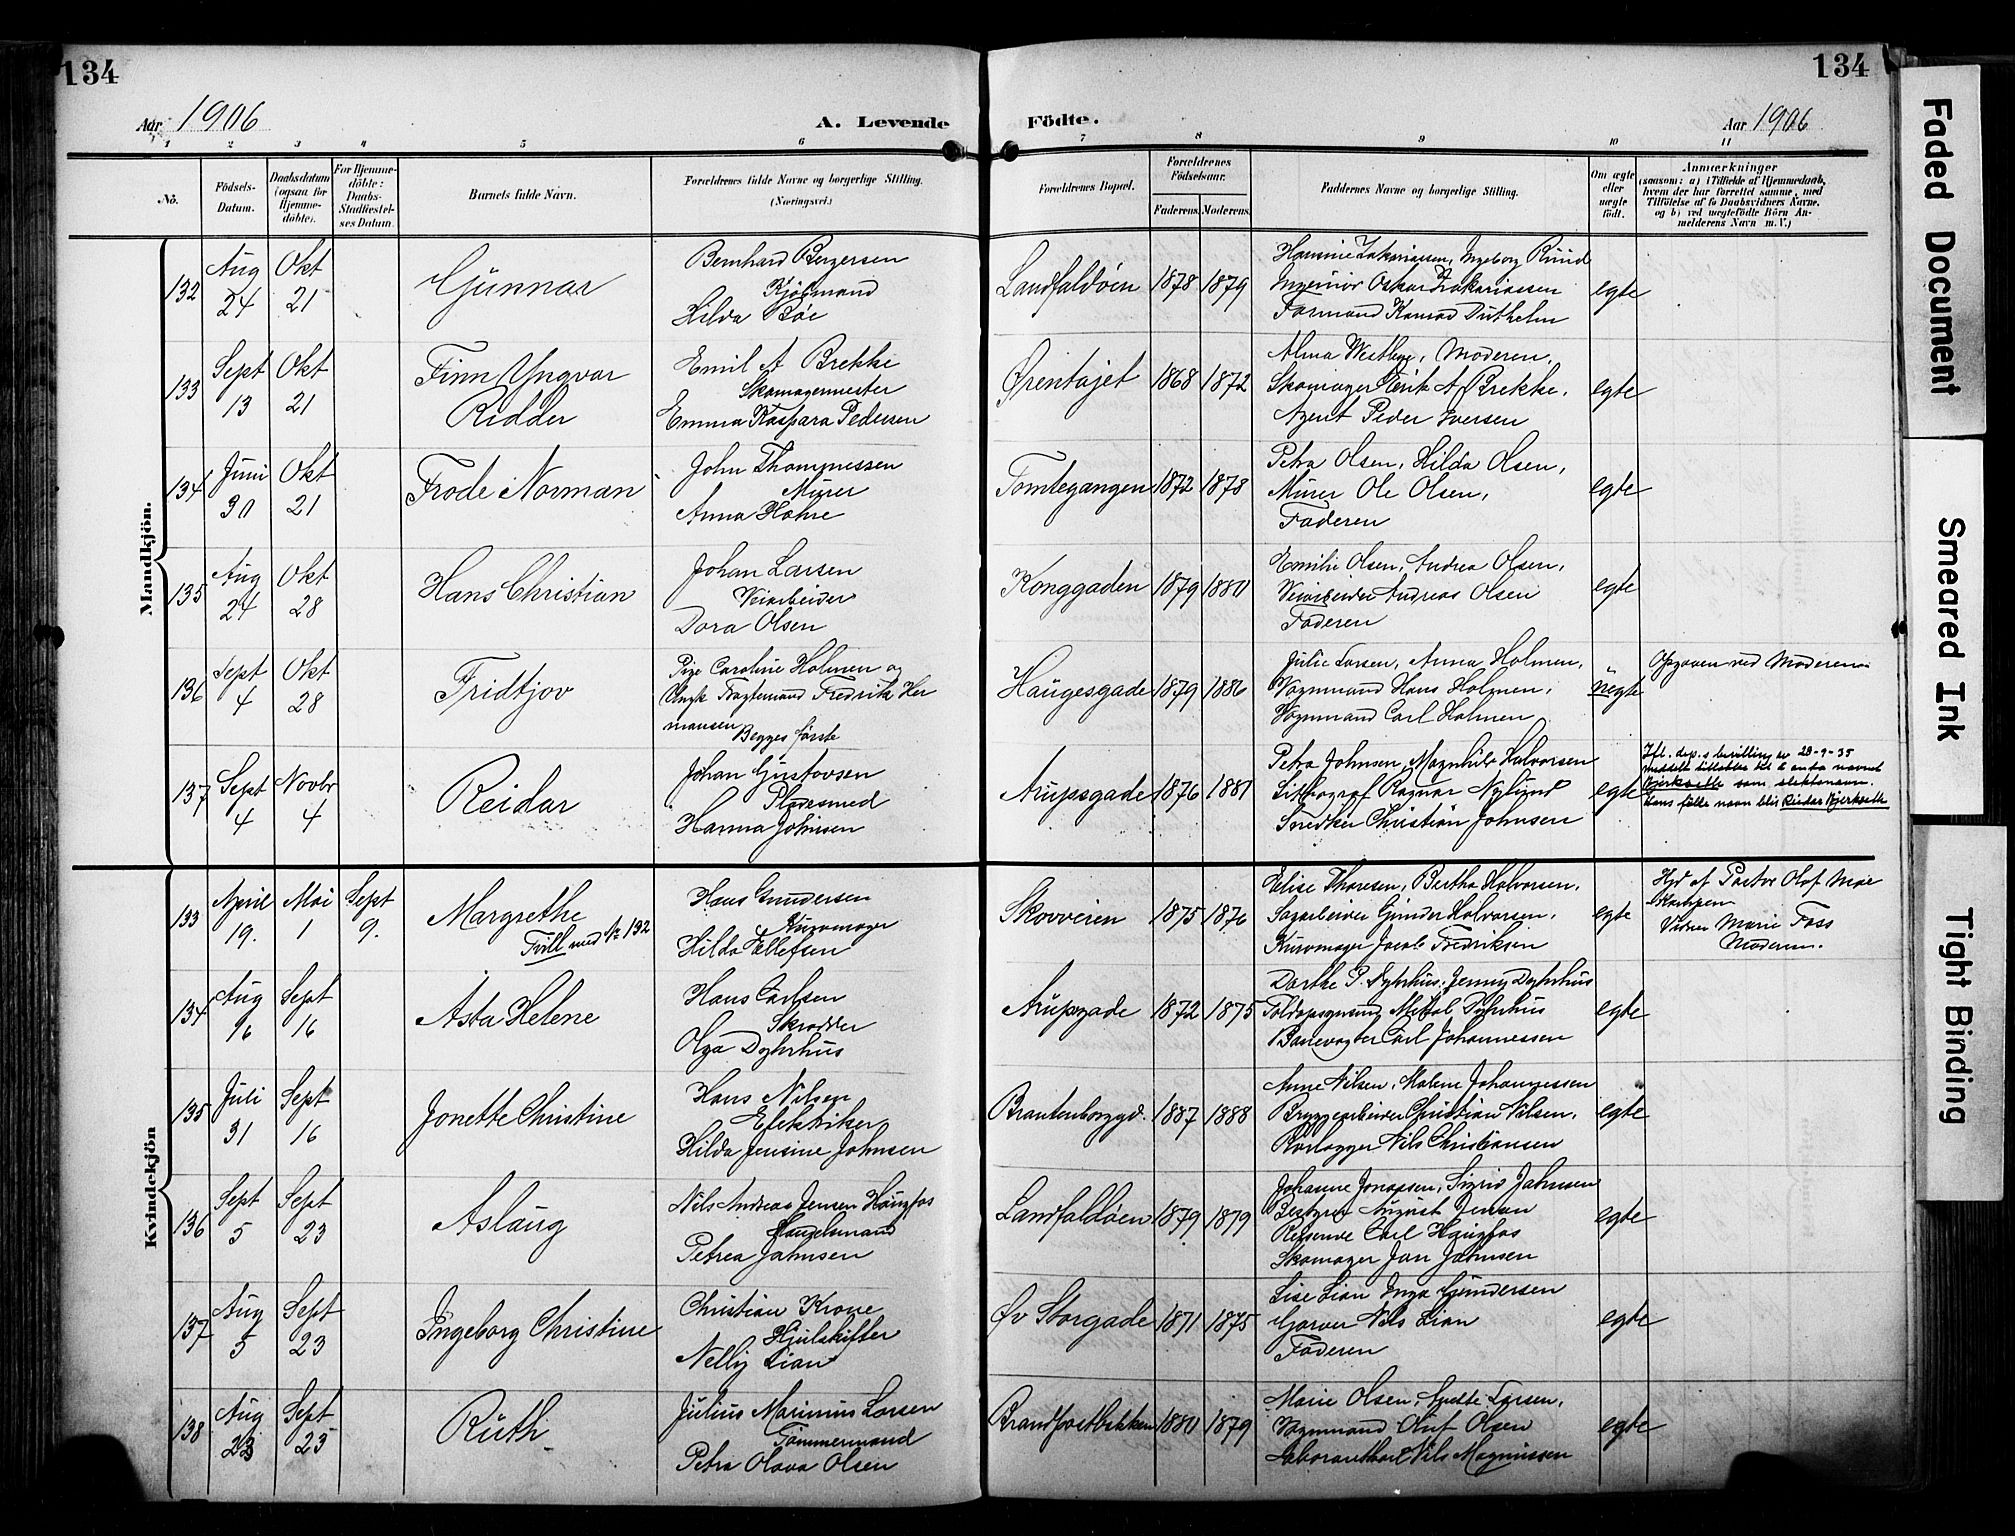 134
134
Aar 1906
A. Levende
Födte.
Aar 1906
1 2 3 4 5 6 7 8 9 10 11
No.
Födsels-
Datum.
Daabsdatum
(ogsaa for
Hjemme-
döbte).
For Hjemme-
döbte:
Daabs-
Stadfæstel-
ses Datum.
Barnets fulde Navn.
Forældrenes fulde Navne og borgerlige Stilling.
(Næringsvei.)
Forældrenes Bopæl.
Forældrenes
Födselsaar.
Faderens. Moderens.
Faddernes Navne og borgerlige Stilling.
Om ægte
eller
uægte
födt.
Anmærkninger
(saasom: a) i Tilfælde af Hjemmedaab,
hvem der har forrettet samme, med
Tilföielse af to Daabsvidners Navne,
og b) ved uægtefödte Börn An-
melderens Navn m. V.)
Mandkjön.
132
Aug
24
Okt
21
Gunnar
Bernhard Bergersen
Kjöbmand
Hilda Böe
Landfaldöen
1878 1879
Hansine Zakariassen, Ingeborg Rúúd
Ingeniör Oskar Zakariassen
Formand Konrad Duthelm
egte
133
Sept
13
Okt
21
Finn Yngvar
Ridder
Emil A Brekke
Skomagermester
Emma Kaspara Pedersen
Ørentajet
1868 1872
Alma Westbye, Moderen,
Skomager Henrik A Brekke,
Agent Peder Iversen
egte
134
Juni
30
Okt
21
Frode Norman
John Thommessen
Múrer
Anna Hohre
Tomtegangen
1872 1878
Petra Olsen, Hilda Olsen,
Múrer Ole Olsen,
Faderen
egte
135
Aug
24
Okt
28
Hans Christian
Johan Larsen
Veiarbeider
Dora Olsen
Konggaden
1879 1880
Emilie Olsen, Andrea Olsen,
Veiarbeider Andreas Olsen
Faderen
egte
136
Sept
4
Okt
28
Fridtjov
Pige Caroline Holmen og
Ungk Fragtemand Fredrik Her
mansen Begges förste
Haugesgade
1879 1886
Julie Larsen, Anna Holmen,
Vognmand Hans Holmen,
Vognmand Carl Holmen
uegte
Opgaven ved Moderen
137
Sept
4
Novbr
4
Reidar
Johan Gustavsen
Pladesmed
Hanna Johnsen
Arupsgade
1876 1881
Petra Johnsen, Magnhild Halvorsen
Lithograf Ragnar Nylund
Snedker Christian Johnsen
egte
Ifl. dep.s bevilling av 28-9-35
meddelt tillatelse til å anta navnet
Bjerksette som slektsnavn.
Hans fulle navn blir Reidar Bjerksette
Kvindekjön
133
April
19.
Mai
1
Sept
9.
Margrethe
Tvill med № 132
Hans Gundersen
Kurvmager
Hilda Ellefsen
Skovveien
1875 1876
Elise Thoresen, Bertha Halvorsen,
Sagarbeider Gunder Halvorsen,
Kurvmager Jacob Fredriksen
egte
Hjd af Pastor Olaf Moe
Vidner Marie Foss
Moderen.
134
Aug
16
Sept
16
Asta Helene
Hans Carlsen
Skrædder
Olga Dyhrhus
Arupsgade
1872 1875
Dorthe P. Dyhrhus, Jenny Dyhrhus
Toldopsynsmd Mettal Dyhrhus
Banevogter Carl Johannessen
egte
135
Juli
31
Sept
16
Jonette Christine
Hans Nilsen
Elektriker
Hilda Jensine Johnsen
Brantenborggd.
1887 1888
Anne Nilsen, Malene Johannessen
Bryggearbeider Christian Nilsen,
Rörlægger Nils Christiansen
egte
136
Sept
5
Sept
23
Aslaug
Nils Andreas Jensen Haugfos
Handelsmand
Petrea Jahnsen
Landfaldöen
1879 1879
Johanne Jonassen, Sigrid Jahnsen
Bestyrer August Jensen
Reisende Carl Haugfos
Skomager Jan Jahnsen
egte
137
Aug
5
Sept
23
Ingeborg Christine
Christian Krone
Hjulskifter
Nelly Lian
Øv Storgade
1871 1875
Lise Lian Inga Gundersen
Garver Nils Lian
Faderen
egte
138
Aug
23
Sept
25
Ruth
Julius Marinius Larsen
Tömmermand
Petra Olava Olsen
Brandpostbakken
1880 1879
Marie Olsen, Larsen,
Vognmand Oluf Olsen
Nils Magnussen
egte
Faded Document
Smeared Ink
Tight Binding